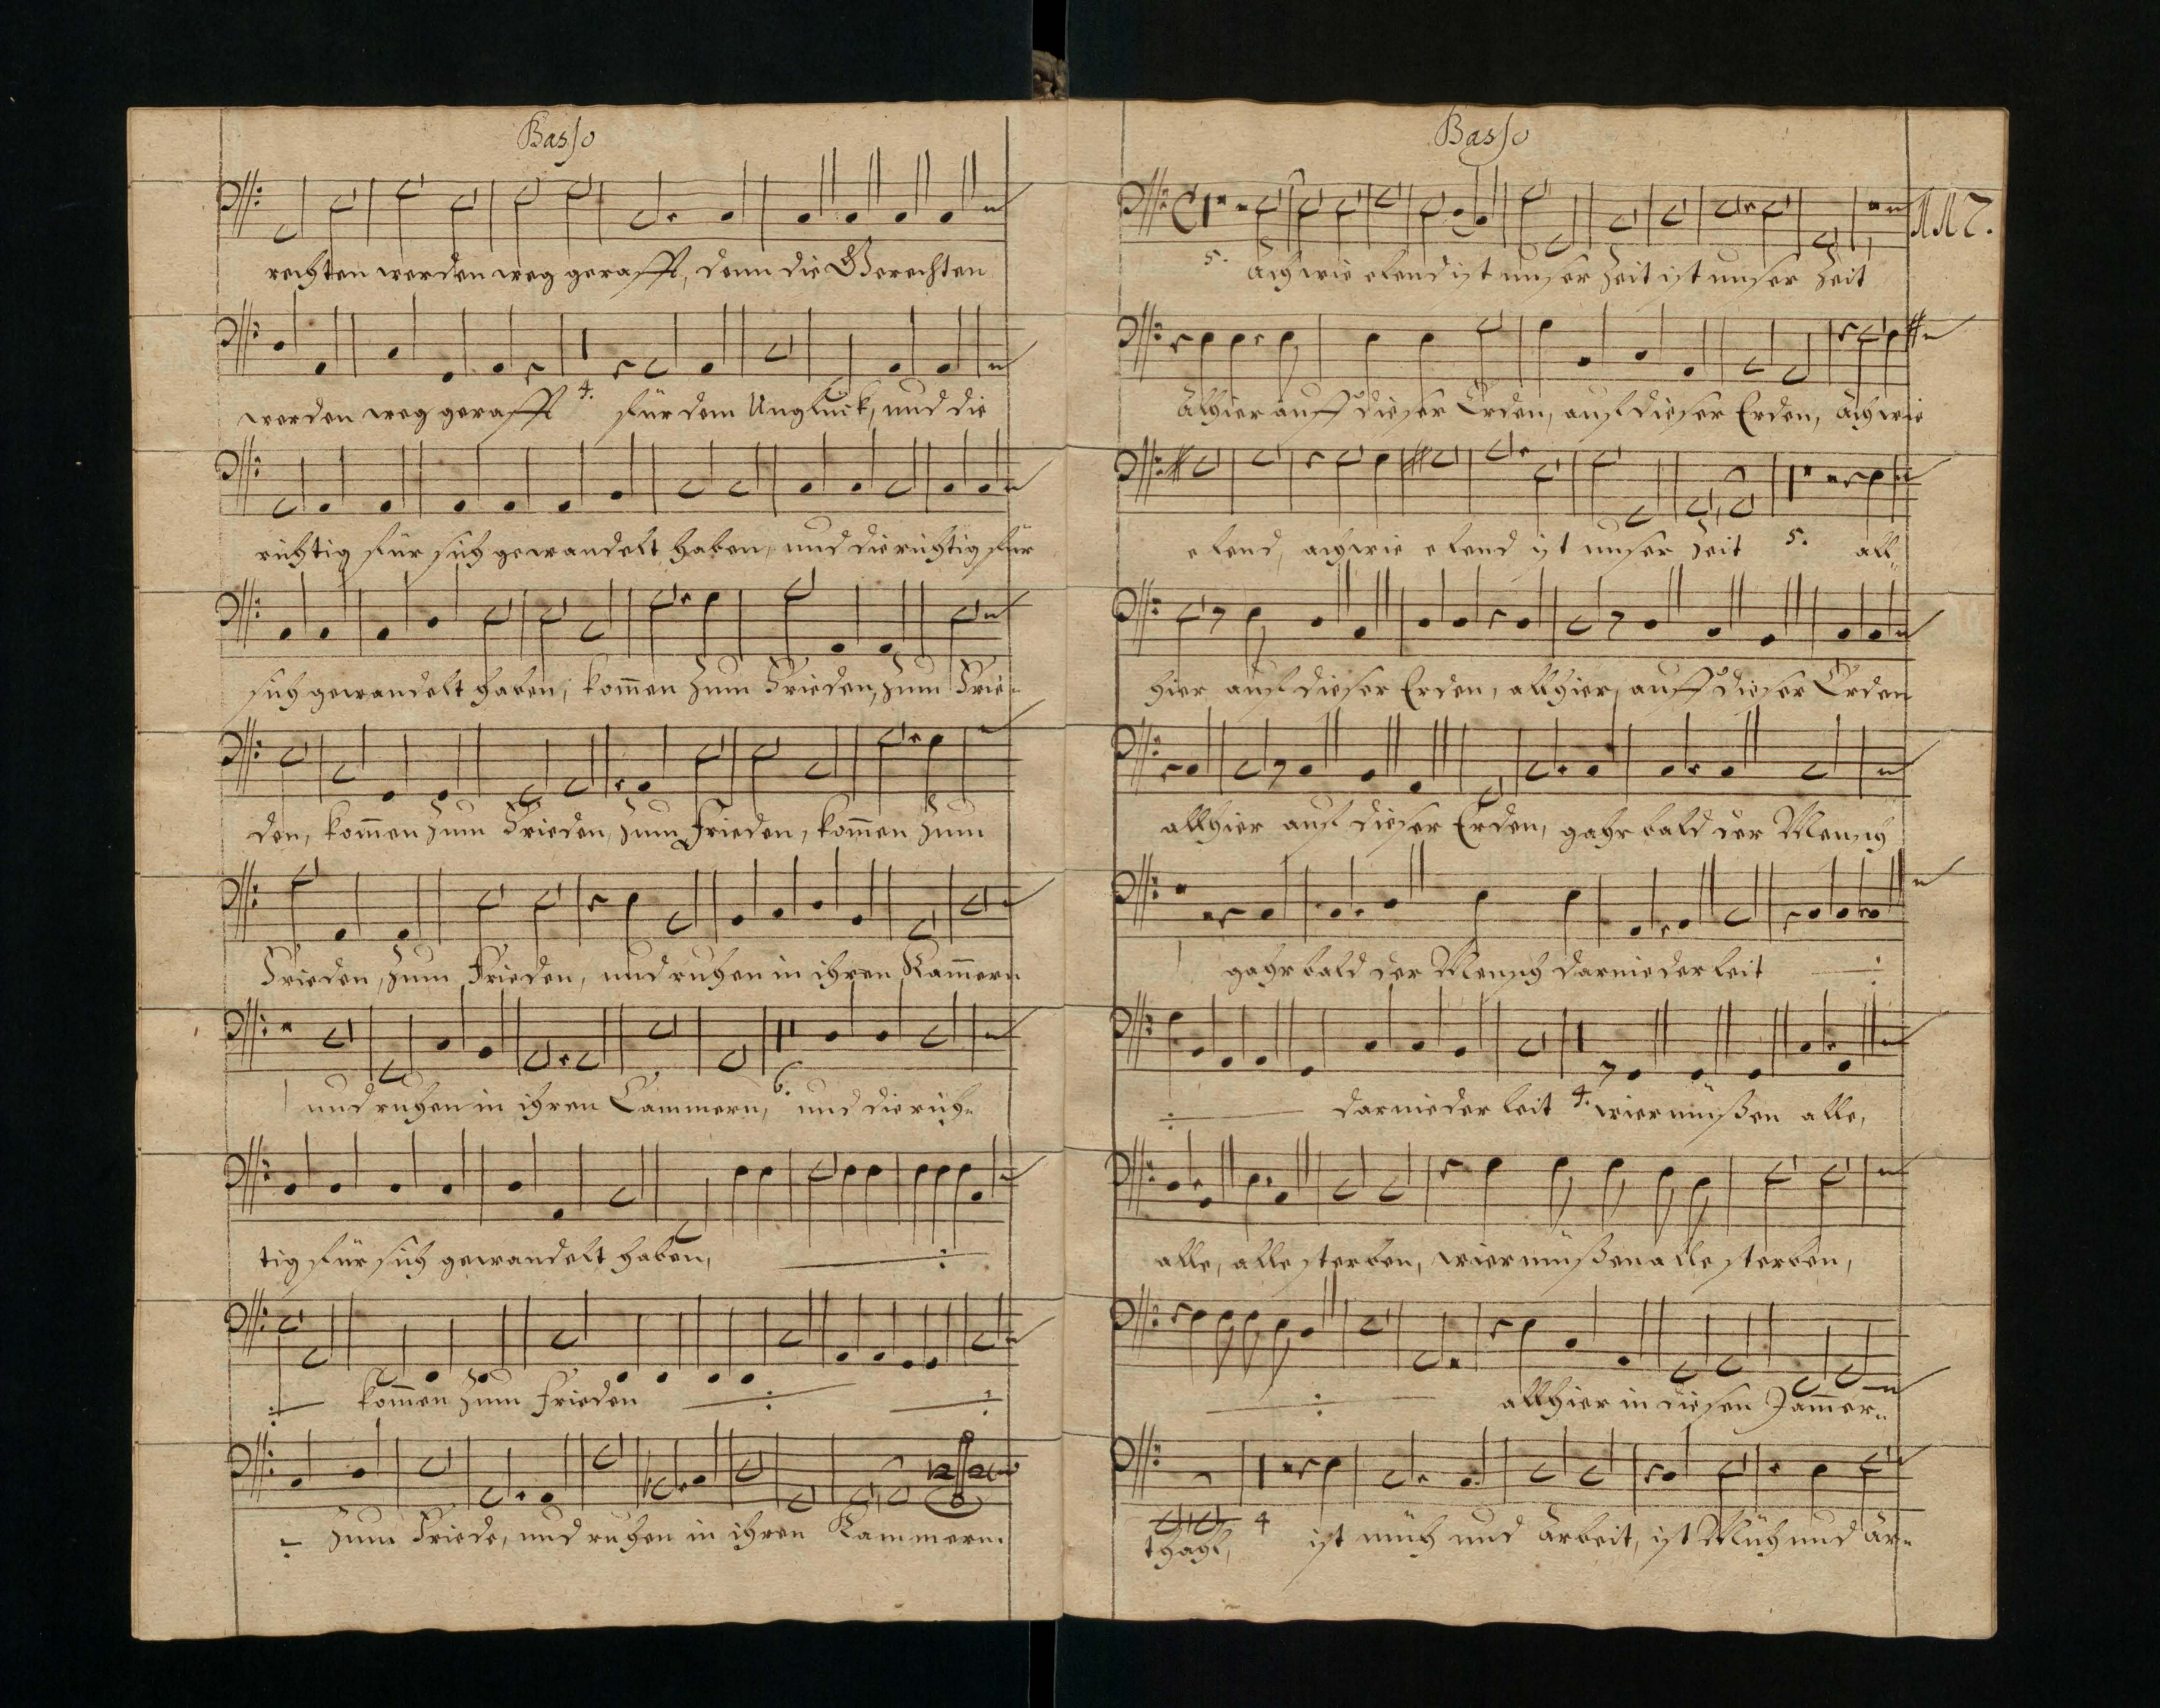 Basso
rechten werden weg gerafft, denn die Gerechten
werden weg gerafft 4. für dem Unglück, und die
richtig für sich gewandelt haben, und die richtig für
sich gewandelt haben, kom̄en zum Frieden, zum Frie-
den, kom̄en zum Frieden, zum Frieden, kom̄en zum
Frieden, zum Frieden, und ruhen in ihren Kam̄ern
und ruhen in ihren Cammern, 6. und die rich-
tig für sich gewandelt haben,
kom̄en zum Frieden
zum Friede, und ruhen in ihren Kammern.
Basso
117.
5. Ach wie elend ist unser Zeit ist unser Zeit
Alhier auff dieser Erden, auf dieser Erden, ach wie
elend, ach wie elend ist unser Zeit 5. all-
hier auf dieser Erden, allhier, auff dieser Erden
allhier auf dieser Erden, gahr bald der Mensch
gahr bald der Mensch darnieder leit
darnieder leit 4. wier müßen alle,
alle, alle sterben, wier müßen alle sterben,
allhier in diesen Jam̄er-
thahl, 4 ist müh und Arbeit, ist Müh und Ar-